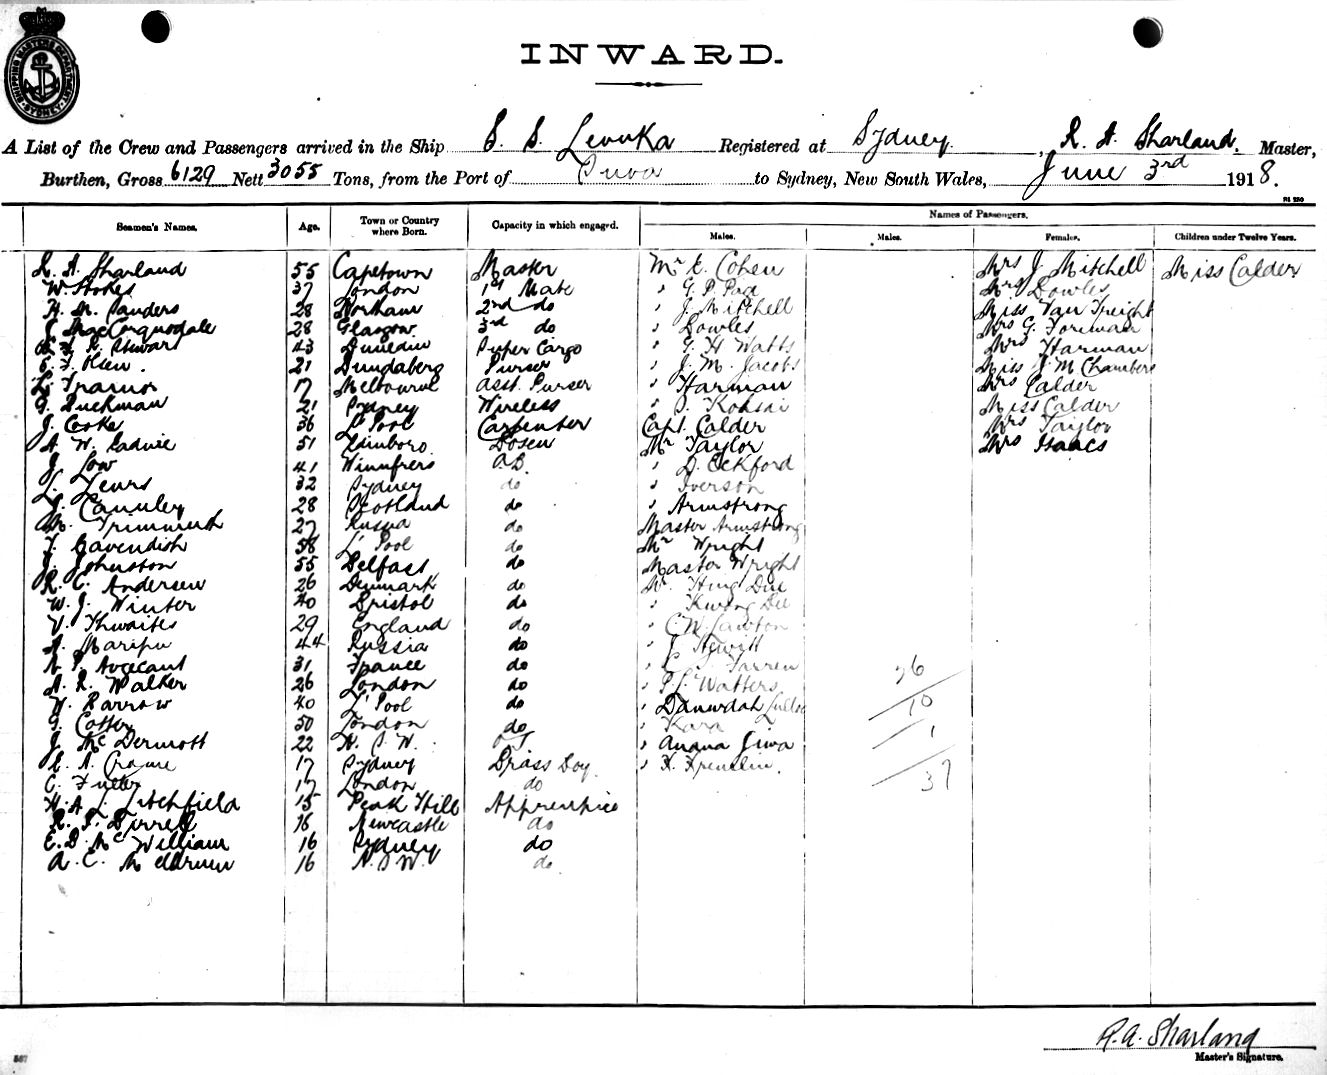 SHIPPING MASTER'S DEPARTMENT SYDNEY
INWARD.
A List of the Crew and Passengers arrived in the Ship S. S. Levuka Registered at Sydney, R. A. Sharland, Master,
Burthen, Gross 6129 Nett 3055 Tons, from the Port of Suva to Sydney, New South Wales, June 3rd 1918.
Seamen's Names. Age. Town or Country where Born. Capacity in which engaged. Names of Passengers.
Males. Males. Females. Children under Twelve Years.
R. A. Sharland 55 Capetown Master Mr E. Cohen Mrs J. Mitchell Miss Calder
W Stokes 37 London 1st Mate " G. P. Mrs Bowles
H. M. Sanders 28 Norham 2nd do " J. Mitchell Miss Van
J. MacCorquodale 28 Glasgow 3rd do " Bowles Mrs G. Foreman
R. Stewart 43 Dunedin Super Cargo " G H Watts Mrs Harman
Olsen. 21 Bundaberg Purser " J. M. Jacobs Miss J M Chambers
L. Trainor 17 Melbourne Asst. Purser " Harman Mrs Calder
G. Buckman 21 Sydney Wireless " Miss Calder
J. Cooke 36 L'Pool Carpenter Capt. Calder Mrs Taylor
A. W. 51 Bosun Mr Taylor Mrs Isaacs
J. Low 41 A.B. " D. Eckford
L. 32 Sydney do " Iverson
J. 28 Scotland do " Armstrong
M. 27 Russia do Master Armstrong
T. Cavendish 58 L'Pool do Mr Wright
J. Johnston 55 Belfast do Master Wright
R. C. Andersen 26 Denmark do Mr. Hing Dee
W. J. Winter 40 Bristol do " Kwong Dee
V. Thwaites 29 England do " C W Lawton
A. 44 Russia do " J Hewitt
31 France do " Farren
A. R. Walker 26 London do " P. J. Watters 26
W. Barrow 40 L'Pool do " 10
G. Cotter 50 London do " Kara 1
J. McDermott 22 N. S. W. " Anana Jiwa
E. A. 17 Sydney Brass Boy " 37
C. Fuller 17 London do
H. A. L. Litchfield 15 Peak Hill Apprentice
R. J. Birrell 16 Newcastle do
E. D. McWilliam 16 Sydney do
A. C. 16 N. S W. do
R. A. Sharland
Master's Signature.